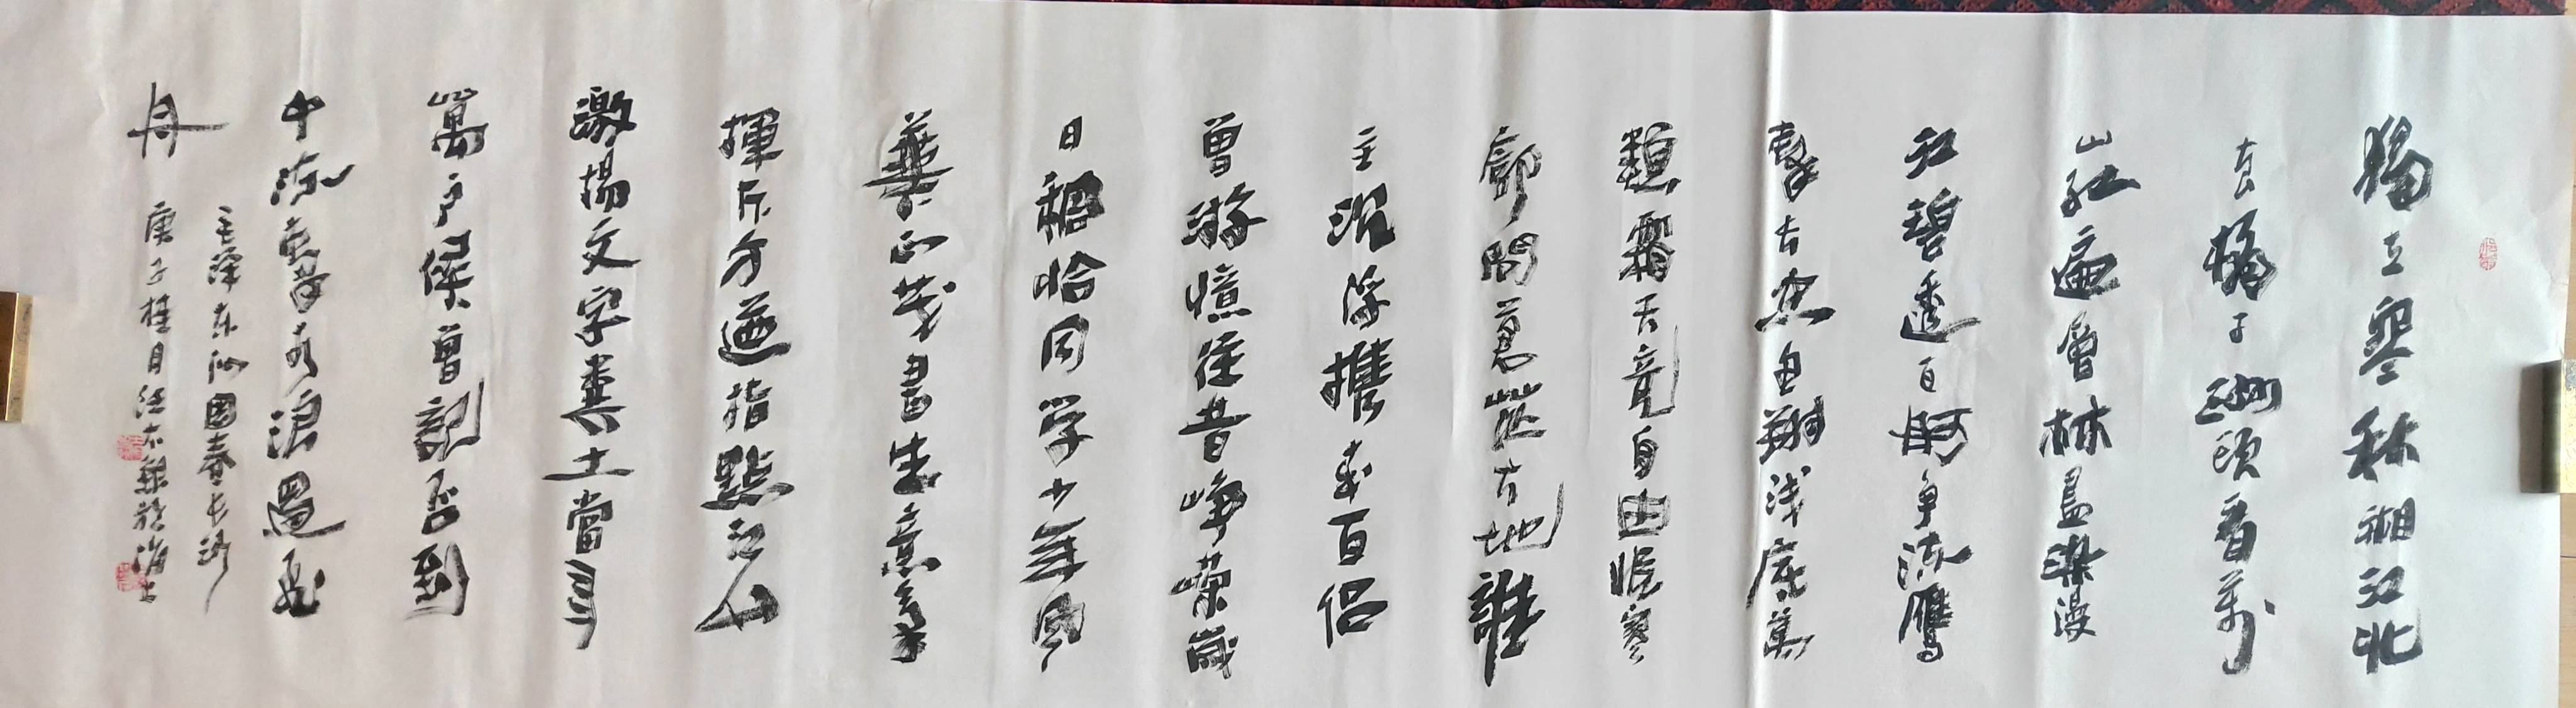 獨立寒秋湘江北
去橘子洲頭看萬
山红遍曾林盡染漫
江碧透百舸争流鷹
擊長空魚翔浅底萬
類霜天竞自由悵寥
廓問蒼茫大地誰
主沉浮携来百侣
曾游憶往昔峥嵘歲
月稠恰同学少年風
華正茂書生意氣
揮斥方遒指點江山
激揚文字糞土當年
萬户侯曾記否到
中流擊水浪遏飛
舟
毛澤东沁園春长沙
庚子桂月於海上